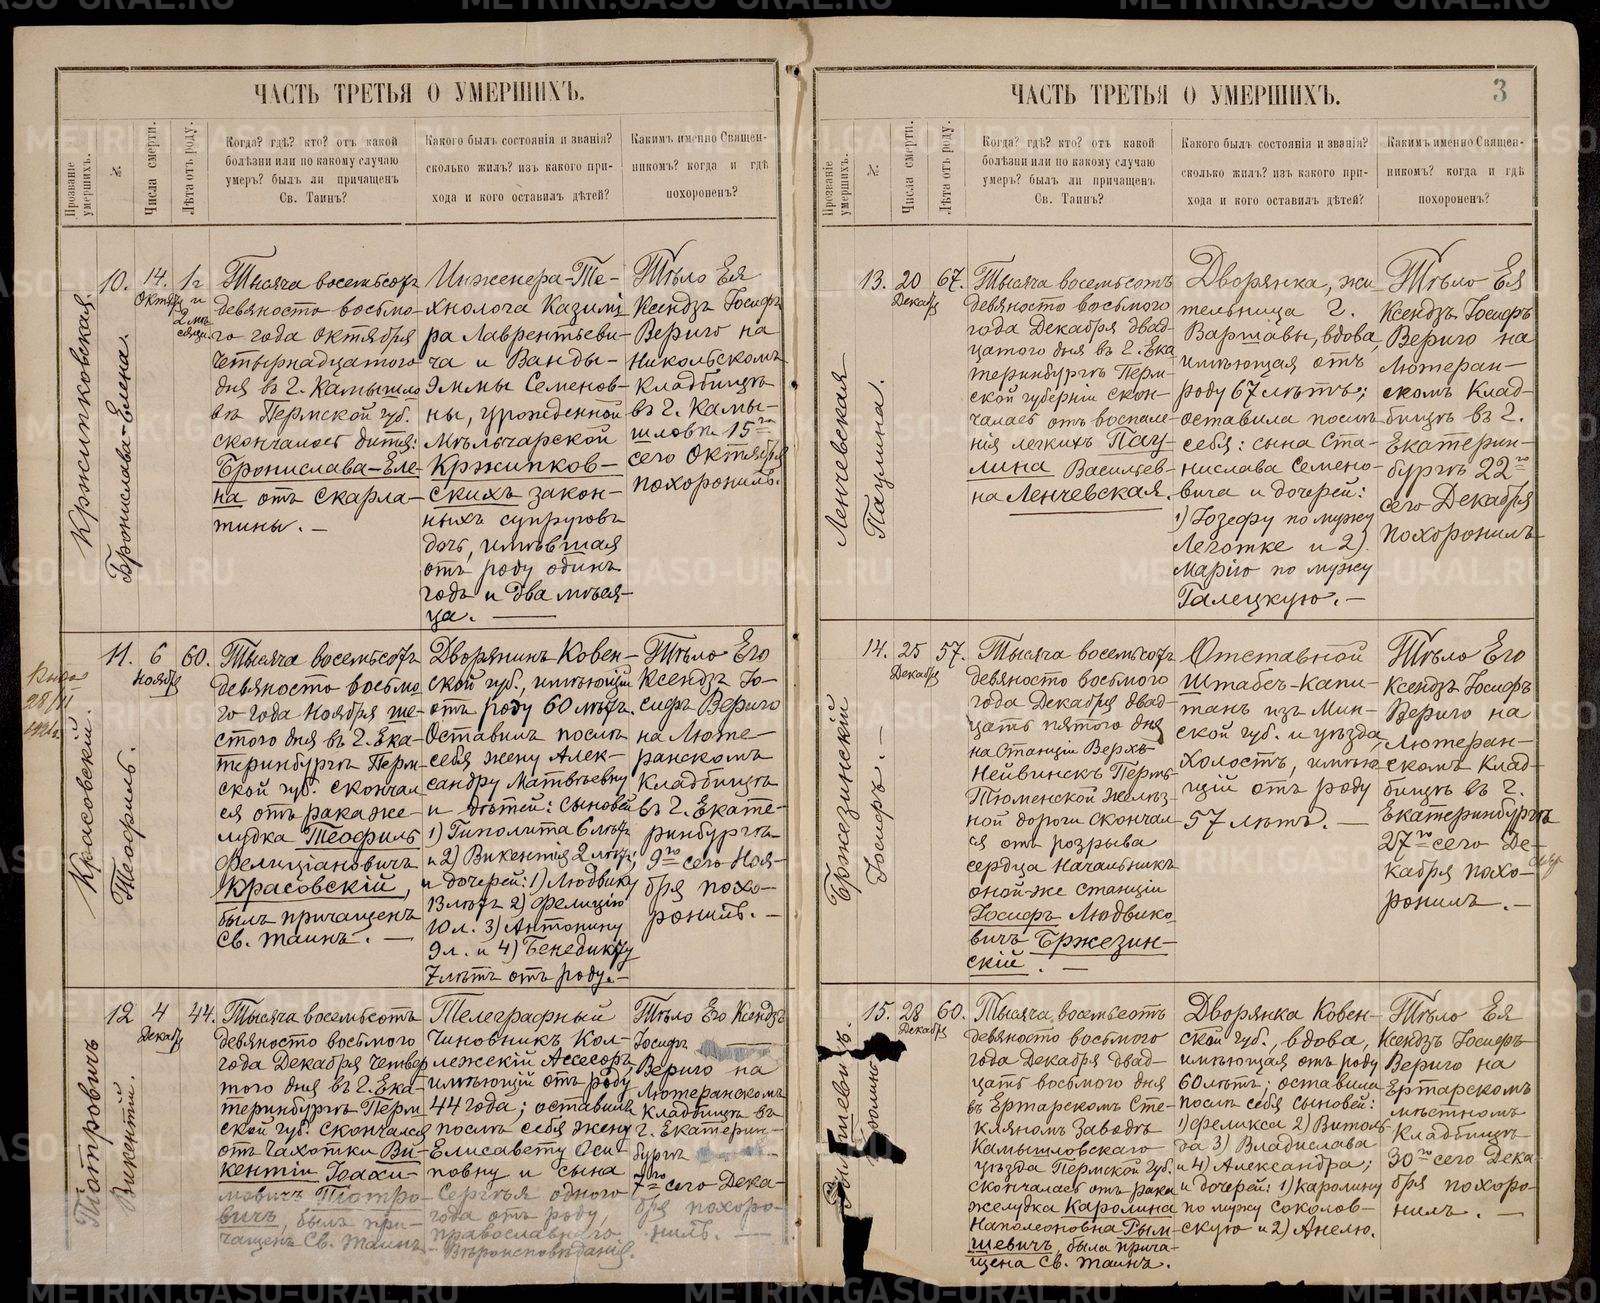 ЧАСТЬ ТРЕТЬЯ О УМЕРШИХЪ.
Прозваніе умершихъ.
№
Числа смерти.
Лѣта отъ роду.
Когда? гдѣ? кто? отъ какой
болѣзни или по какому случаю
умеръ? былъ ли причащенъ
Св. Таинъ?
Какого былъ состоянія и званія?
сколько жилъ? изъ какого при-
хода и кого оставилъ дѣтей?
Какимъ именно Священ-
никомъ? когда и гдѣ
похороненъ?
Кржипковская
Бронислава-Елена.
10.
14.
Октяб.
1 г.
и
2 мѣ-
сяца
Тысяча восемьсотъ
девяносто восьмо-
го года Октября
четырнадцатого
дня въ г. Камышло
въ Пермской губ.
скончалась дитя:
Бронислава-Еле-
на отъ скарла-
тины. —
Инженера-Те-
хнолога Казими
ра Лаврентьеви-
ча и Ванды-
Эммы Семенов-
ны, урожденной
Мѣльчарской
Кржипков-
скихъ закон-
ныхъ супруговъ
дочь, имѣвшая
отъ роду одинъ
годъ и два мѣся-
ца. —
Тѣло Ея
Ксендзъ Іосифъ
Вериго на
Никольскомъ
кладбищѣ
въ г. Камы-
шловѣ 15го
сего Октября
похоронилъ.
28/II
Красовскій.
Теофиль.
11.
6
Ноября
60.
Тысяча восемьсотъ
девяносто восьмо
го года Ноября ше-
стого дня въ г. Ека-
теринбургѣ Перм-
ской губ. скончал
ся отъ рака же-
лудка Теофиль
Фелиціановичъ
Красовскій,
былъ причащенъ
Св. Таинъ. —
Дворянинъ Ковен-
ской губ., имѣющій
отъ роду 60 лѣтъ.
Оставилъ послѣ
себя жену Алек-
сандру Матвѣевну
и дѣтей: сыновей
1) Гиполита 6 лѣтъ
и 2) Викентія 2 лѣтъ;
и дочерей: 1) Людвику
13 лѣтъ 2) Фелицію
10 л. 3) Антонину
9 л. и 4) Бенедикту
7 лѣтъ отъ роду. —
Тѣло Его
Ксендзъ Іо-
сифъ Вериго
на Люте-
ранскомъ
кладбищѣ
въ г. Екате-
ринбургѣ
9го сего Ноя-
бря похо-
ронилъ. —
Піотровичъ
Викентій.
12
4
Декабр
44.
Тысяча восемьсотъ
девяносто восьмого
года Декабря четвер
того дня въ г. Ека-
теринбургѣ Перм
ской губ. скончался
отъ чахотки Ви-
кентій Іоахи-
мовичъ Піотро-
вичъ, былъ при-
чащенъ Св. Таинъ
Телеграфный
Чиновникъ Кол-
лежскій Ассесоръ,
имѣющій отъ роду
44 года; оставилъ
послѣ себя жену
Елисавету Оси-
повну и сына
Сергѣя одного
года отъ роду,
православнаго
Вѣроисповѣданія.
Тѣло Его Ксендзъ
Іосифъ
Вериго на
Лютеранскомъ
кладбищѣ въ
г. Екатерин-
бургѣ
7го сего Дека-
бря похоро-
нилъ. —
ЧАСТЬ ТРЕТЬЯ О УМЕРШИХЪ.
3
Прозваніе умершихъ.
№
Числа смерти.
Лѣта отъ роду.
Когда? гдѣ? кто? отъ какой
болѣзни или по какому случаю
умеръ? былъ ли причащенъ
Св. Таинъ?
Какого былъ состоянія и званія?
сколько жилъ? изъ какого при-
хода и кого оставилъ дѣтей?
Какимъ именно Священ-
никомъ? когда и гдѣ
похороненъ?
Ленчевская
Паулина.
13.
20
Декабр
67.
Тысяча восемьсотъ
девяносто восьмого
года Декабря двад-
цатого дня въ г. Ека
теринбургѣ Перм-
ской губерніи скон-
чалась отъ воспале-
нія легкихъ Пау-
лина Васильев-
на Ленчевская.
Дворянка, жи-
тельница г.
Варшавы, вдова,
имѣющая отъ
роду 67 лѣтъ;
оставила послѣ
себя: сына Ста-
нислава Семено-
вича и дочерей:
1) Іозефу по мужу
Леготке и 2)
Марію по мужу
Галецкую. —
Тѣло Ея
Ксендзъ Іосифъ
Вериго на
Лютеран-
скомъ Клад-
бищѣ въ г.
Екатерин-
бургѣ 22го
сего Декабря
похоронилъ
Бржезинскій
Іосифъ. —
14.
25
Декабр
57.
Тысяча восемьсотъ
девяносто восьмого
года Декабря двад-
цать пятого дня
на Станціи Верхъ
Нейвинскъ Пермь
Тюменской желѣз-
ной дороги скончал
ся отъ розрыва
сердца начальникъ
оной-же станціи
Іосифъ Людвико
вичъ Бржезин-
скій. —
Отставной
Штабсъ-Капи-
танъ изъ Мин-
ской губ. и уѣзда,
холостъ, имѣю-
щій отъ роду
57 лѣтъ. —
Тѣло Его
Ксендзъ Іосифъ
Вериго на
Лютеран-
скомъ Клад-
бищѣ въ г.
Екатеринбургѣ
27го сего Де-
кабря похо-
ронилъ. —
15.
28
Декабр
60.
Тысяча восемьсотъ
девяносто восьмого
года Декабря двад-
цать восьмого дня
въ Ертарскомъ Сте-
кляномъ заводѣ
Камышловскаго
уѣзда Пермской губ.
скончалась отъ рака
желудка Каролина
Наполеоновна Рым-
шевичъ, была прича-
щена Св. Таинъ.
Дворянка Ковен-
ской губ., вдова,
имѣющая отъ роду
60 лѣтъ; оставила
послѣ себя сыновей:
1) Феликса 2) Витоль
да 3) Владислава
и 4) Александра;
и дочерей: 1) Каролину
по мужу Соколов-
скую и 2) Анелю.
Тѣло Ея
Ксендзъ Іосифъ
Вериго на
Ертарскомъ
мѣстномъ
кладбищѣ
30го сего Дека-
бря похоро-
нилъ. —